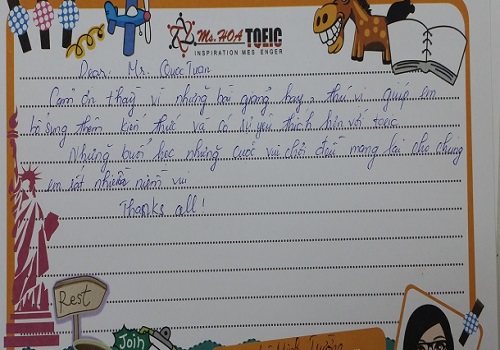 Ms. HOA TOEIC
INSPIRATION MESSENGER
Dear: Mr. Quốc Tuấn
Cảm ơn thầy vì những bài giảng hay, thú vị giúp em
bổ sung thêm kiến thức và có sự yêu thích hơn với toeic
Những buổi học những cuộc vui chơi đều mang lại cho chúng
em rất nhiều niềm vui
Thanks all!
Rest
Join